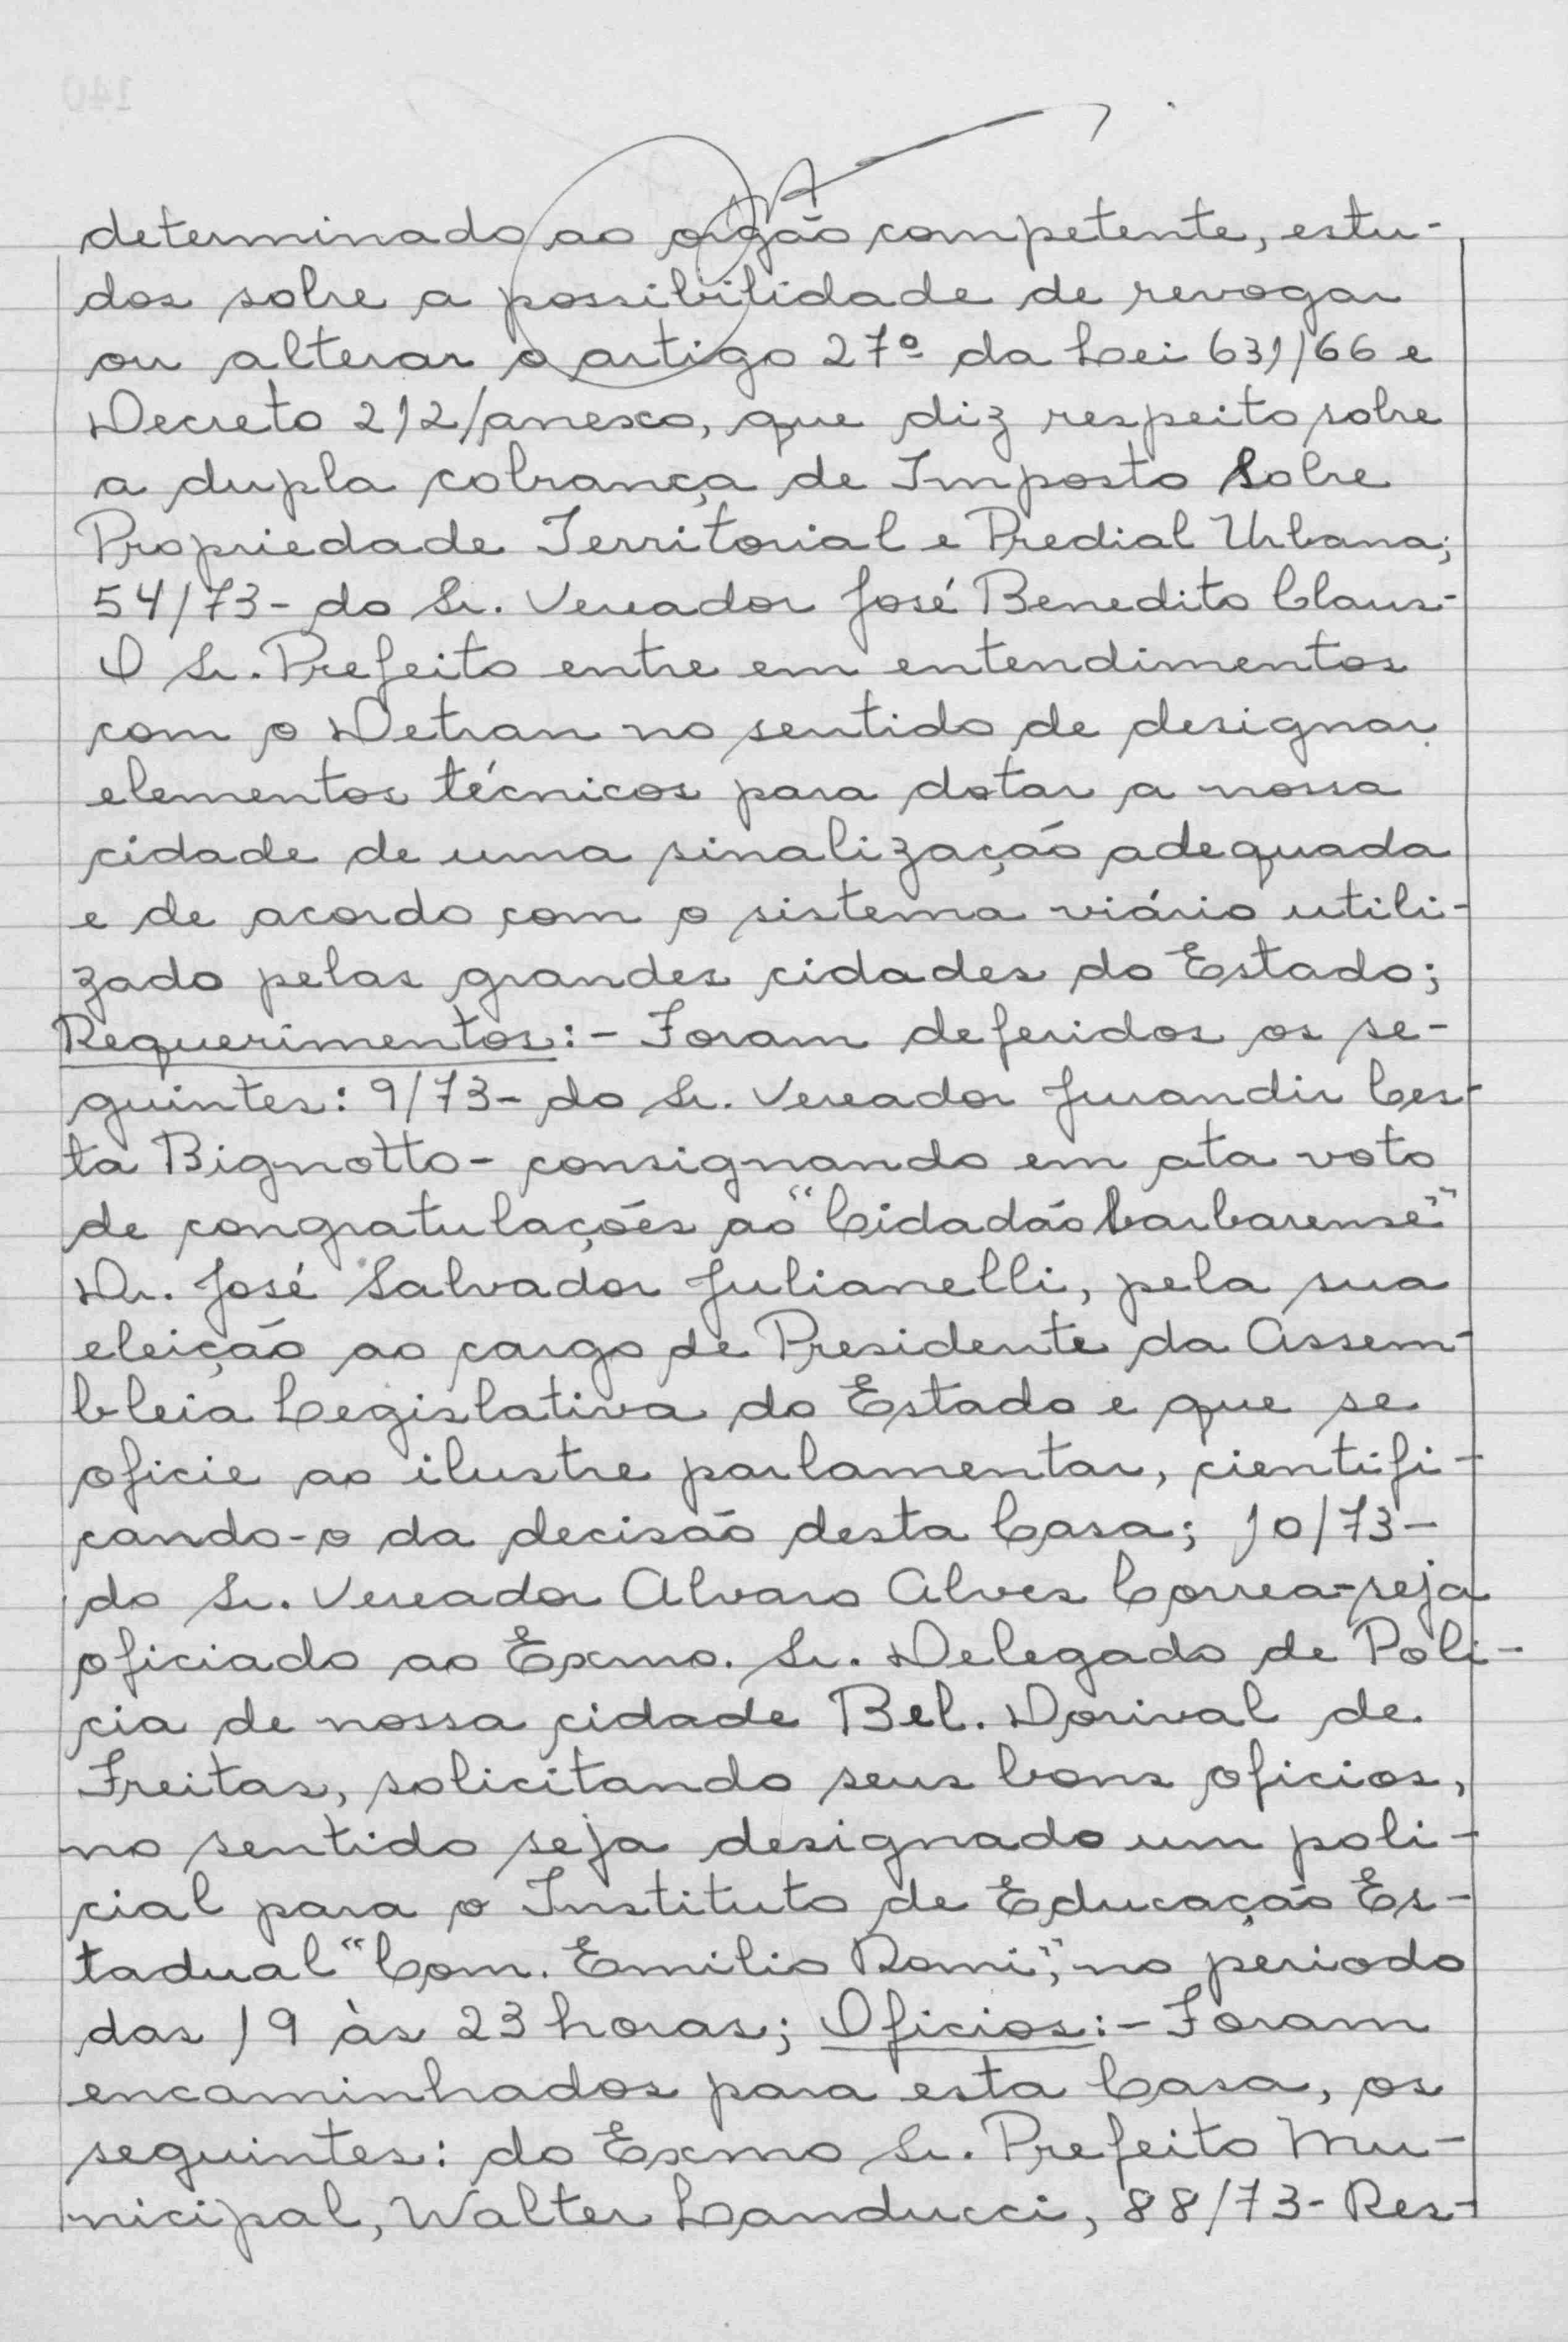 determinado ao orgão competente, estu-
dos sobre a possibilidade de revogar
ou alterar o artigo 27º da Lei 631/66 e
Decreto 212/anexo, que diz respeito sobre
a dupla cobrança de Imposto Sobre
Propriedade Territorial e Predial Urbana;
54/73- do Sr. Vereador José Benedito Claus-
O Sr. Prefeito entre em entendimentos
com o Detran no sentido de designar
elementos técnicos para dotar a nossa
cidade de uma sinalização adequada
e de acordo com o sistema viário utili-
zado pelas grandes cidades do Estado;
Requerimentos:- Foram deferidos os se-
guintes: 9/73- do Sr. Vereador Jurandir Ces-
ta Bignotto- consignando em ata voto
de congratulações ao "Cidadão barbarense"
Dr. José Salvador Julianelli, pela sua
eleição ao cargo de Presidente da Assem-
bleia Legislativa do Estado e que se
oficie ao ilustre parlamentar, cientifi-
cando-o da decisão desta Casa; 10/73-
do Sr. Vereador Alvaro Alves Correa-seja
oficiado ao Exmo. Sr. Delegado de Poli-
cia de nossa cidade Bel. Dorival de
Freitas, solicitando seus bons oficios,
no sentido seja designado um poli-
cial para o Instituto de Educação Es-
tadual "Com. Emilio Romi", no periodo
das 19 às 23 horas; Oficios:- Foram
encaminhados para esta Casa, os
seguintes: do Exmo Sr. Prefeito Mu-
nicipal, Walter Landucci, 88/73- Res-